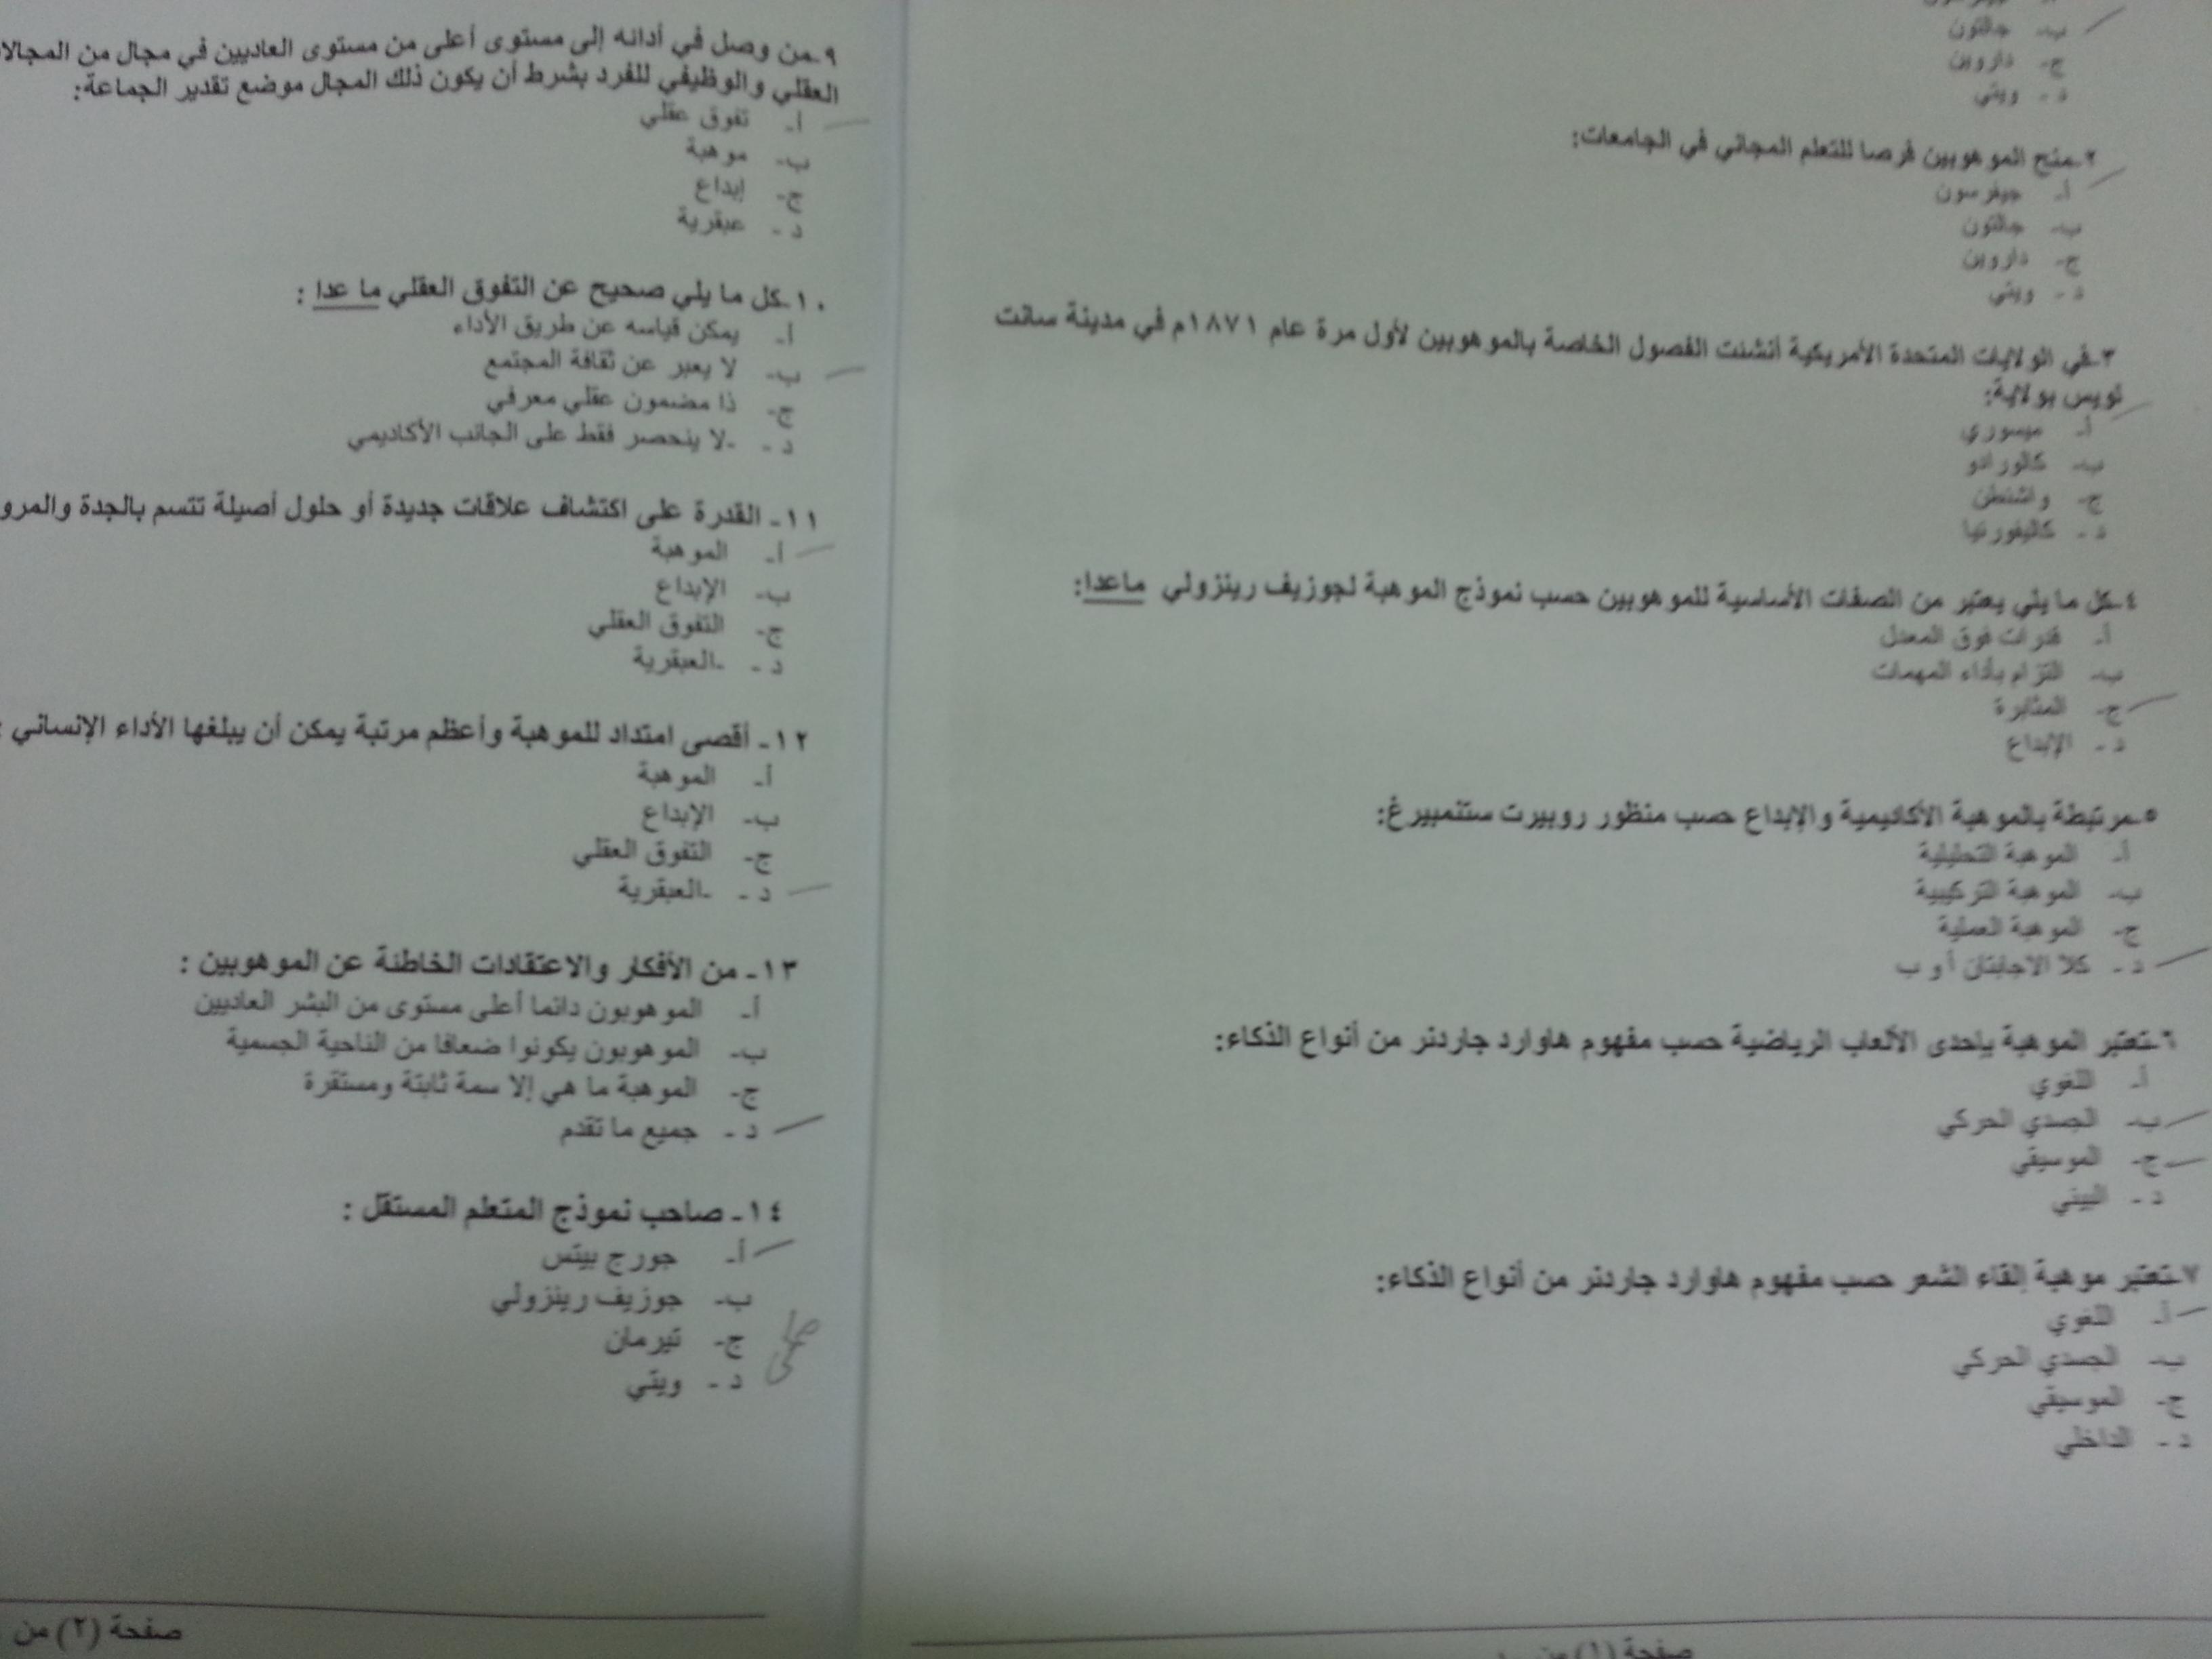 ب- جالتون
ج- داروين
د- ويتي
٢-منح الموهوبين فرصا للتعلم المجاني في الجامعات:
أ- جيفرسون
ب- جالتون
ج- داروين
د- ويتي
٣-في الولايات المتحدة الأمريكية أنشئت الفصول الخاصة بالموهوبين لأول مرة عام ١٨٧١م في مدينة سانت
لويس بولاية:
أ- ميسوري
ب- كالورادو
ج- واشنطن
د- كاليفورنيا
٤-كل ما يلي يعتبر من الصفات الأساسية للموهوبين حسب نموذج الموهبة لجوزيف رينزولي ماعدا:
أ- قدرات فوق المعدل
ب- التزام بأداء المهمات
ج- المثابرة
د- الإبداع
٥-مرتبطة بالموهبة الأكاديمية والإبداع حسب منظور روبيرت ستنمبيرغ:
أ- الموهبة التحليلية
ب- الموهبة التركيبية
ج- الموهبة العملية
د- كلا الاجابتان أ و ب
٦-تعتبر الموهبة بإحدى الألعاب الرياضية حسب مفهوم هاوارد جاردنر من أنواع الذكاء:
أ- اللغوي
ب- الجسدي الحركي
ج- الموسيقي
د- البيني
٧-تعتبر موهبة إلقاء الشعر حسب مفهوم هاوارد جاردنر من أنواع الذكاء:
أ- اللغوي
ب- الجسدي الحركي
ج- الموسيقي
د- الداخلي
صفحة (١) من
٩-من وصل في أدائه إلى مستوى أعلى من مستوى العاديين في مجال من المجالا
العقلي والوظيفي للفرد بشرط أن يكون ذلك المجال موضع تقدير الجماعة:
أ- تفوق عقلي
ب- موهبة
ج- إبداع
د- عبقرية
١٠-كل ما يلي صحيح عن التفوق العقلي ما عدا :
أ- يمكن قياسه عن طريق الأداء
ب- لا يعبر عن ثقافة المجتمع
ج- ذا مضمون عقلي معرفي
د- -لا ينحصر فقط على الجانب الأكاديمي
١١- القدرة على اكتشاف علاقات جديدة أو حلول أصيلة تتسم بالجدة والمرو
أ- الموهبة
ب- الإبداع
ج- التفوق العقلي
د- -العبقرية
١٢- أقصى امتداد للموهبة وأعظم مرتبة يمكن أن يبلغها الأداء الإنساني :
أ- الموهبة
ب- الإبداع
ج- التفوق العقلي
د- -العبقرية
١٣- من الأفكار والاعتقادات الخاطئة عن الموهوبين :
أ- الموهوبون دائما أعلى مستوى من البشر العاديين
ب- الموهوبون يكونوا ضعافا من الناحية الجسمية
ج- الموهبة ما هي إلا سمة ثابتة ومستقرة
د- جميع ما تقدم
١٤- صاحب نموذج المتعلم المستقل :
أ- جورج بيتس
ب- جوزيف رينزولي
ج- تيرمان
د- ويتي
صفحة (٢) من